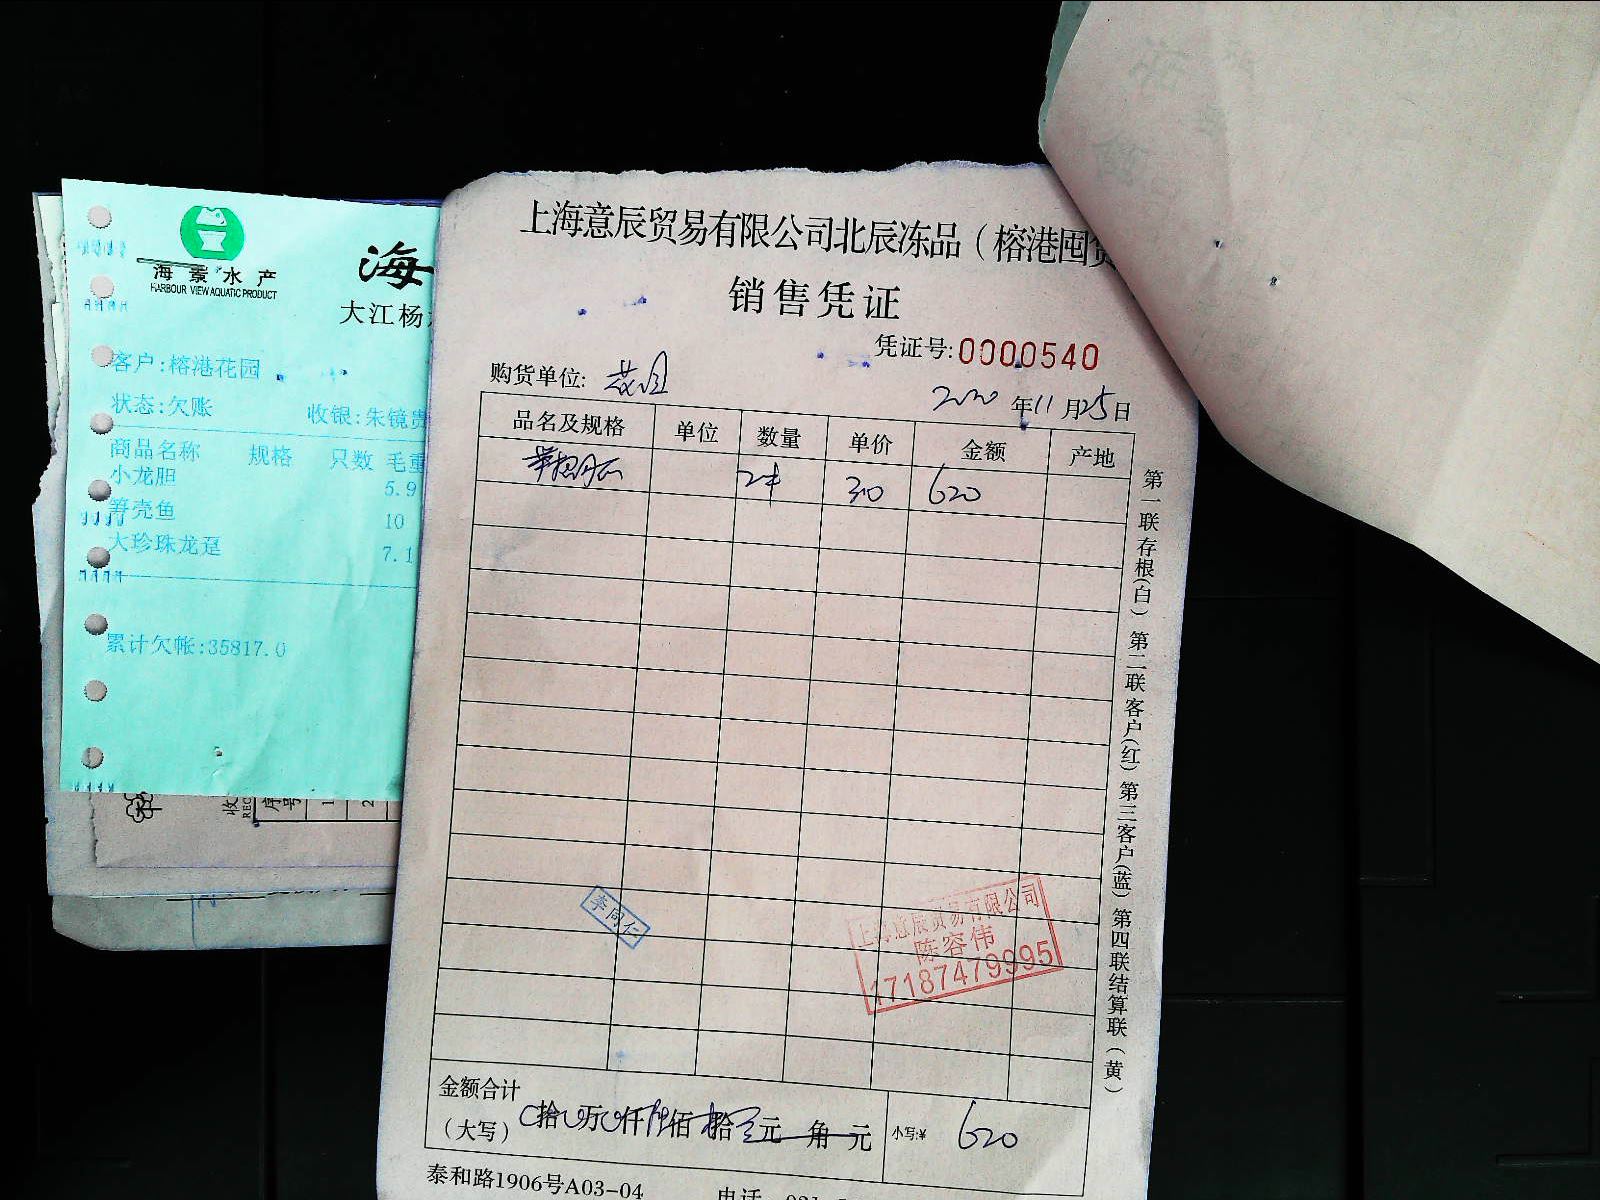 海景水产
HARBOUR VIEW AQUATIC PRODUCT
海
大江杨
客户:榕港花园
状态:欠账 收银:朱镜贵
商品名称 规格 只数 毛重
小龙胆 5.9
笋壳鱼 10
大珍珠龙趸 7.1
累计欠帐:35817.0
收
REC
序号
1
2
上海意辰贸易有限公司北辰冻品（榕港囤货
销售凭证
凭证号:0000540
购货单位: 花园
2020年11月25日
品名及规格 单位 数量 单价 金额 产地
2件 310 620
第一联存根(白) 第二联客户(红) 第三客户(蓝) 第四联结算联(黄)
李同仁
上海意辰贸易有限公司
陈容伟
17187479995
金额合计
(大写) 拾 万 仟 佰 拾 元 角 元 小写:¥ 620
泰和路1906号A03-04 电话 021